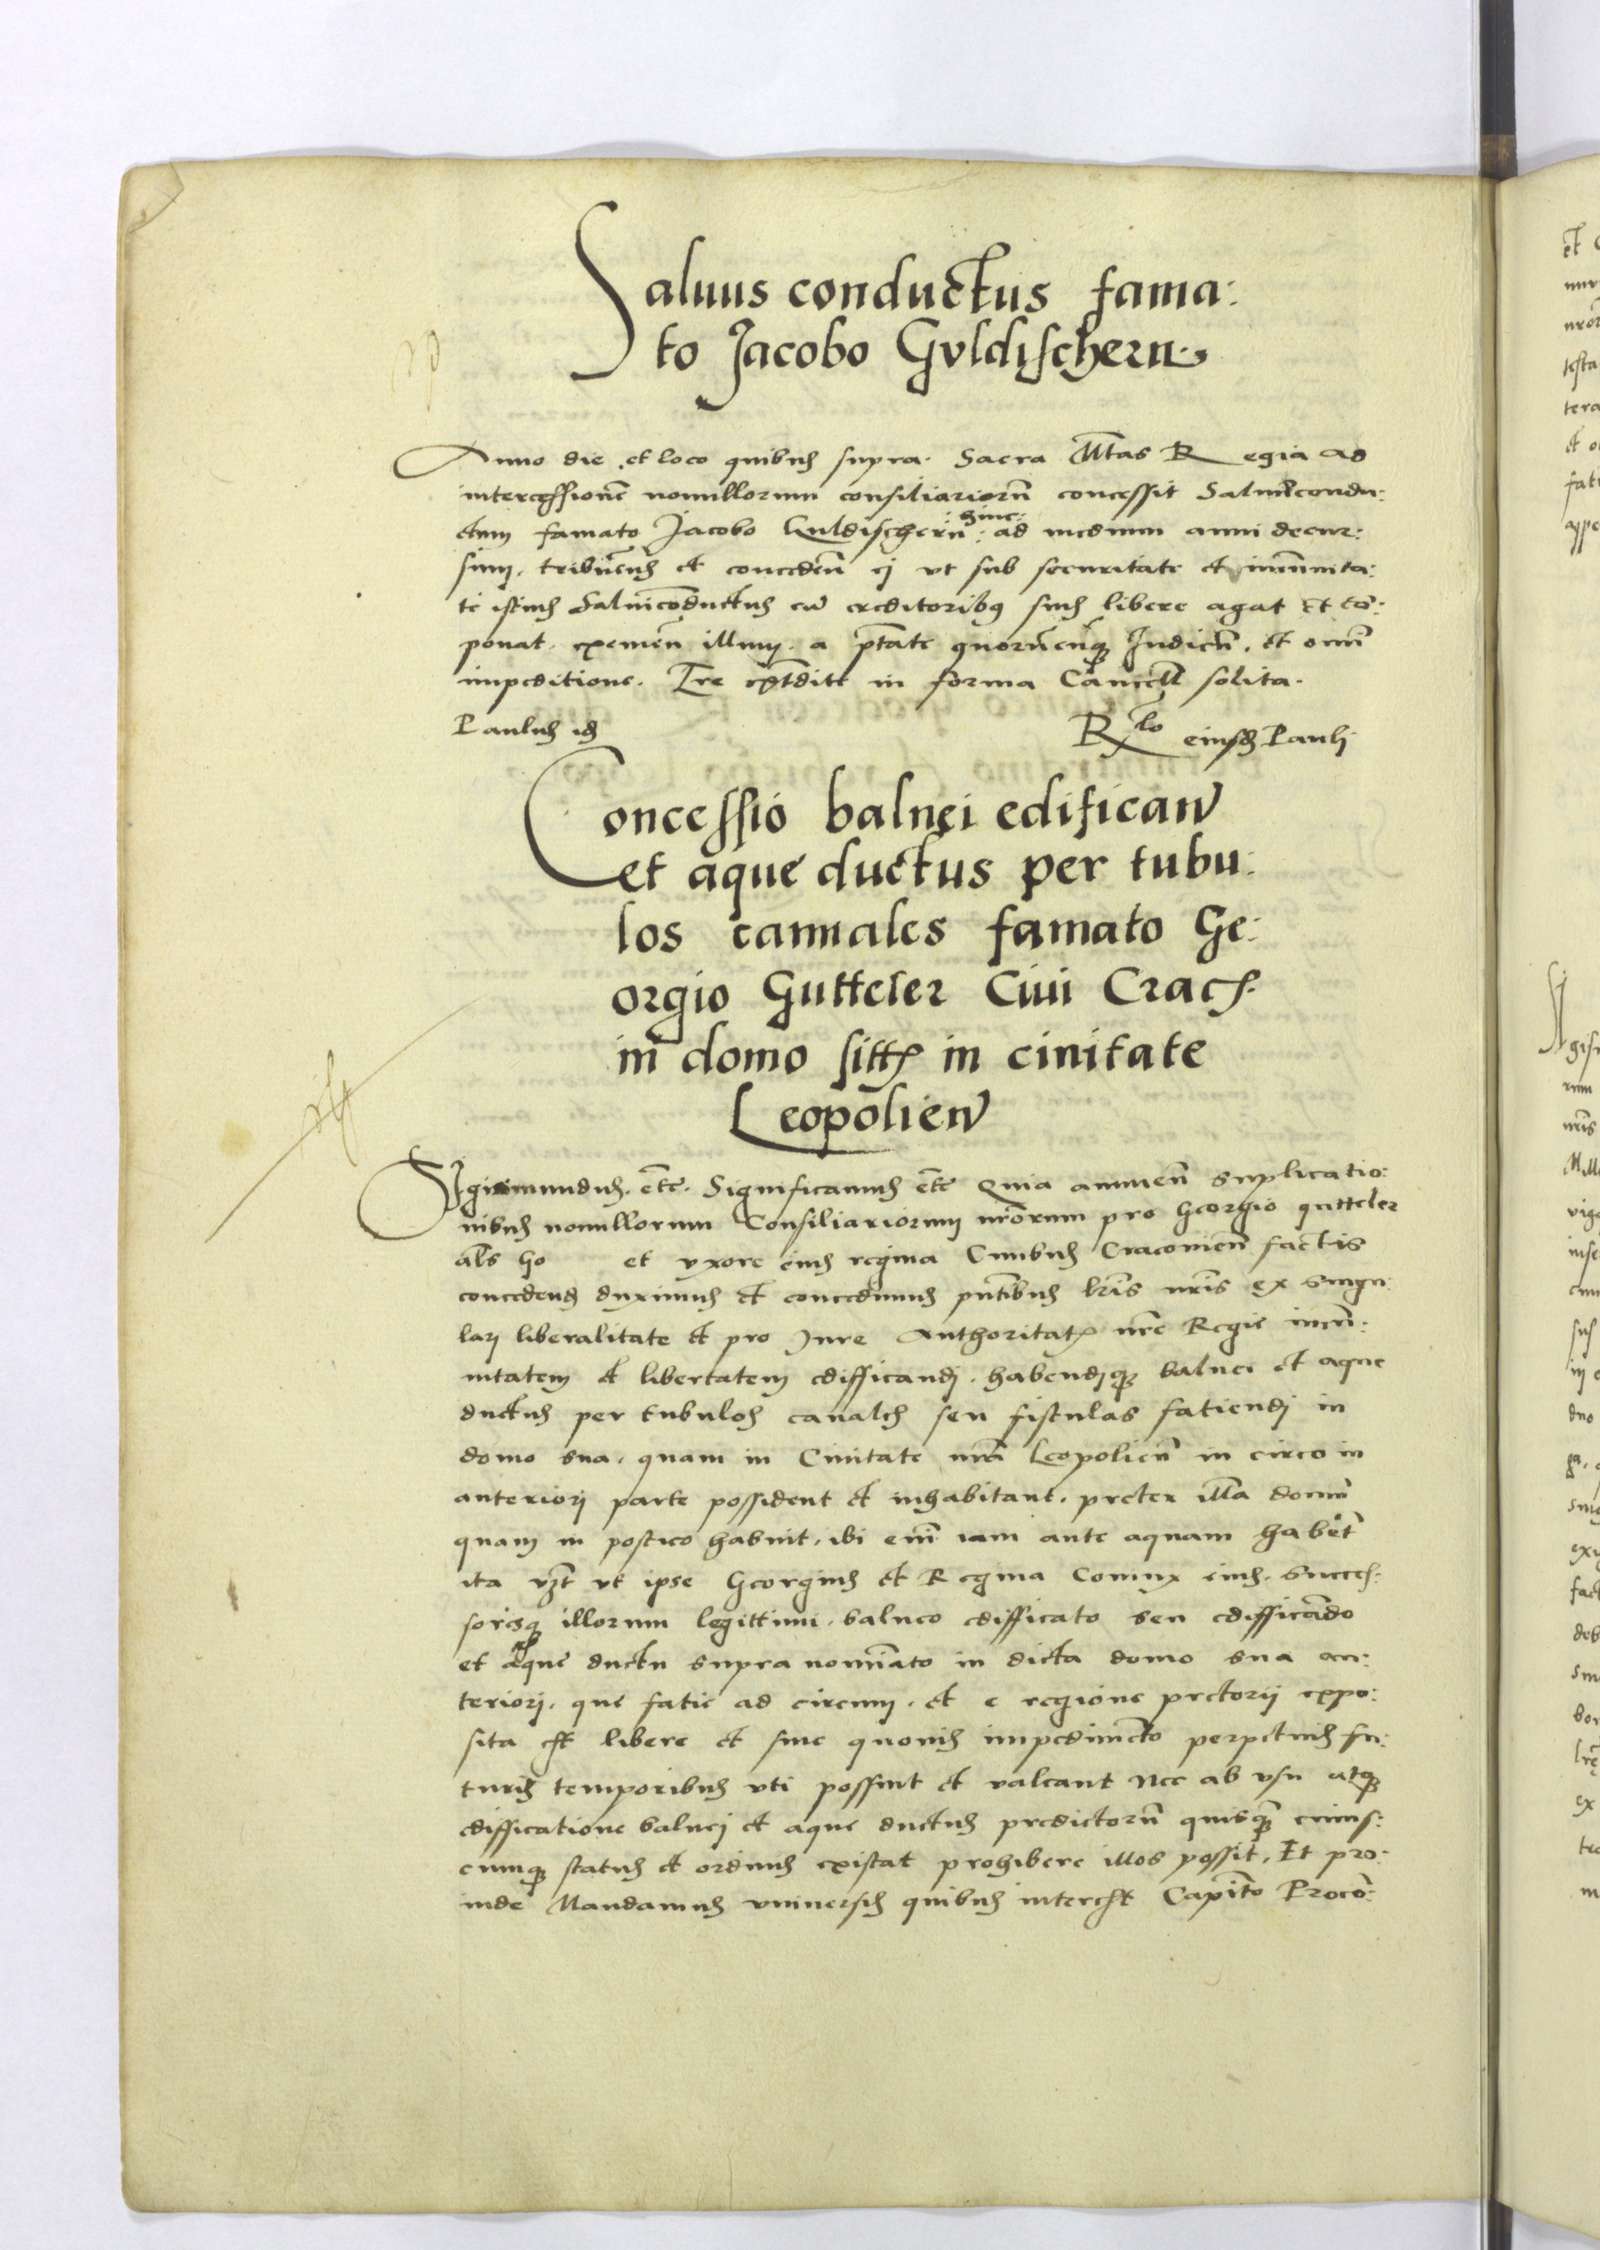 Saluus conductus fama:
to Jacobo Gvldischern
Anno die et loco quibus supra. Sacra Mtas Regia ad
intercessione nonnullorum consiliariorū concessit Saluūcondu:
ctum famato Jacobo Guldischern: hinc: ad medium anni decur:
sum, tribuens et conceden̄ ej vt sub securitate et im̄unita:
te istius Saluicōductus cū creditoribq suis libere agat Et cō:
ponat. exemen̄ illum. a ptāte quorūcūq Iudicū, et omī
impeditione. Lre expedite in forma Cancell solita.
Paulus id
Rlo eiusd Pauli
Concessio balnei edifican̄
et aque ductus per tubu:
los cannales famato Ge:
orgio Gutteler Ciui Crac.
in domo sitt in ciuitate
Leopolien̄
Sigismundus. etc̄. Significamus etc̄ Quia annuen̄ suplicatio:
nibus nonnullorum Consiliariorum nrōrum pro Georgio gutteler
als Go et vxore eius regina Ciuibus Cracouien̄ factis
concedend duximus et concedimus pntībus lrīs nrīs ex singu:
lari liberalitate et pro Jure Authoritat nrē Regie im̄u:
nitatem et libertatem edifficandj. habendiq balnei et aque
ductus per tubulos canales seu fistulas fatiendj in
domo sua. quam in Ciuitate nrā Leopolien̄ in circo in
anteriorj parte possident et inhabitant. preter illā domū
quam in postico habuit. ibi enī iam ante aquam habēt
ita vzt vt ipse Georgius et Regina Coniux eius. succes:
soresq illorum legittimi. balneo edifficato seu edifficādo
et aque ductu supra nomīato in dicta domo sua an:
teriorj. que fatie ad circum. et e regione pretorii expo:
sita est libere et sine quouis impedimēto perpetuis fu:
turis temporibus vti possint et valeant Nec ab vsu atq
edifficatione balnej et aque ductus predictorū quisq̄ cuius:
cumq status et ordinis existat prohibere illos possit. Et pro:
inde Mandamus vniuersis quibus interest Capīto Procō: